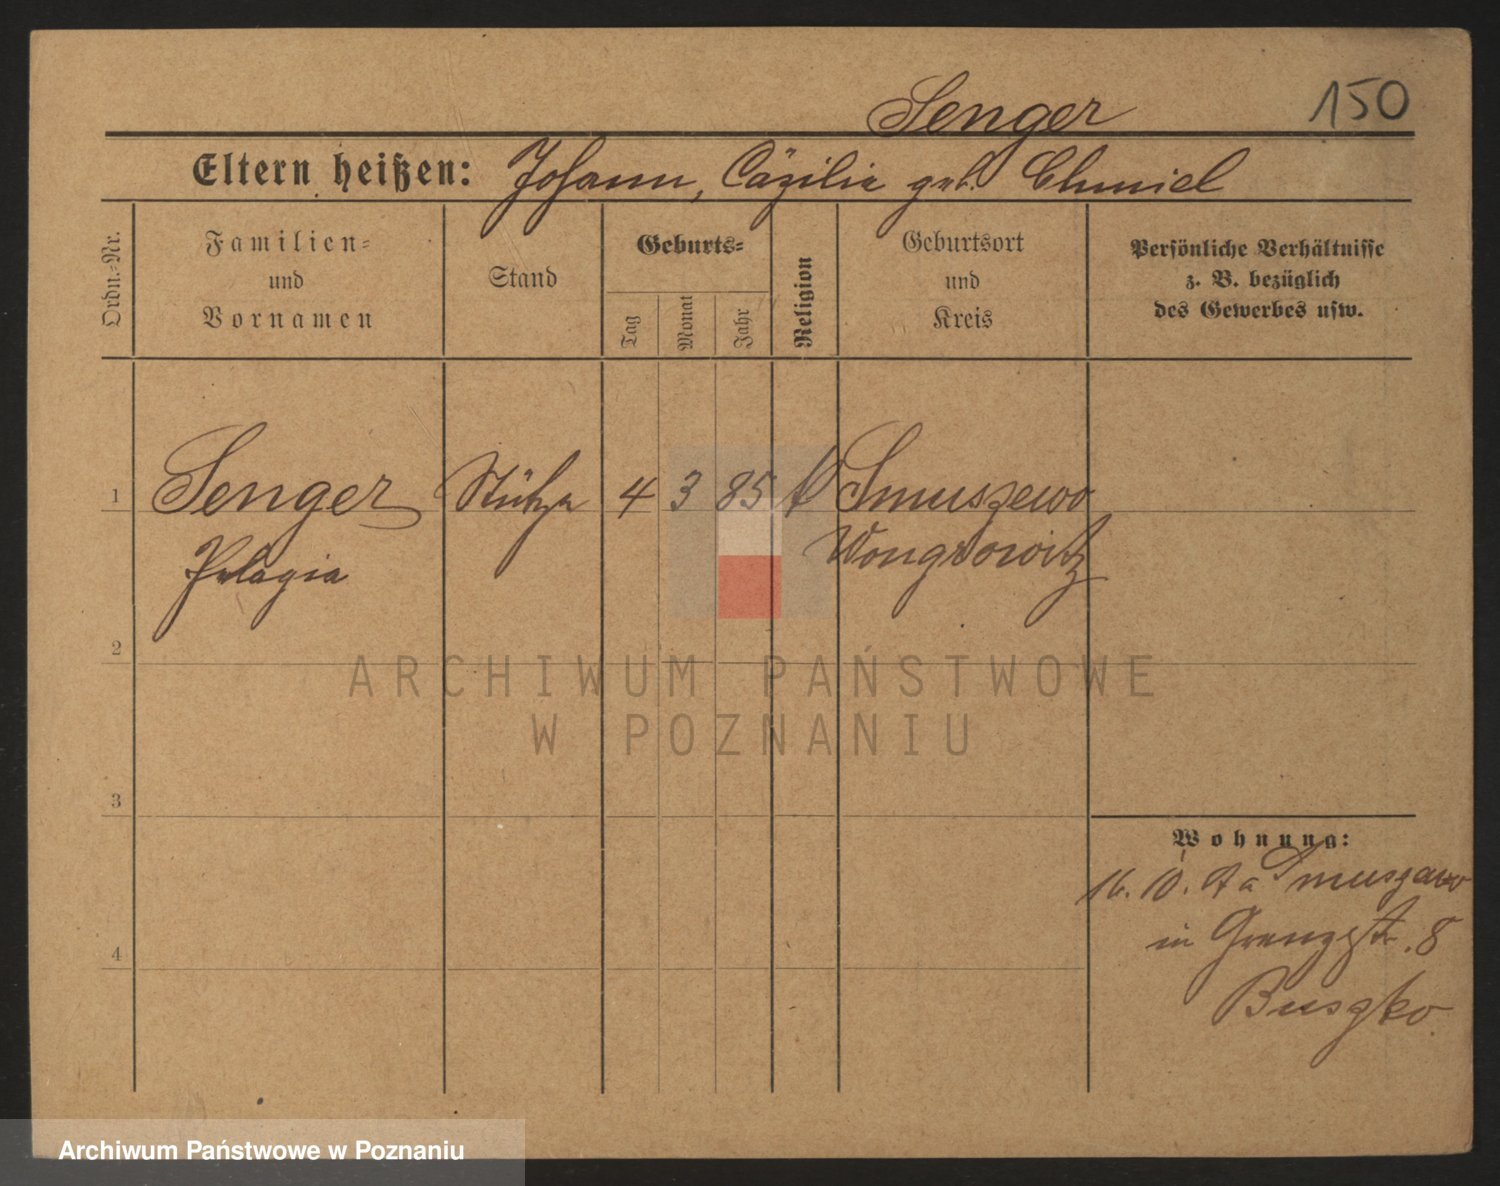 Senger 150
Eltern heißen: Johann, Cäzilie geb. Chmiel
Ordn.-Nr.
Familien-
und
Vornamen
Stand
Geburts-
Tag
Monat
Jahr
Religion
Geburtsort
und
Kreis
Persönliche Verhältnisse
z. B. bezüglich
des Gewerbes usw.
1 Senger Stütze 4 3 85 k Smuszewo
Pelagia Wongrowitz
2
ARCHIWUM PAŃSTWOWE
W POZNANIU
3
Wohnung:
16. 10. a Smuszewo
in Grenzstr. 8
Buszko
4
Archiwum Państwowe w Poznaniu